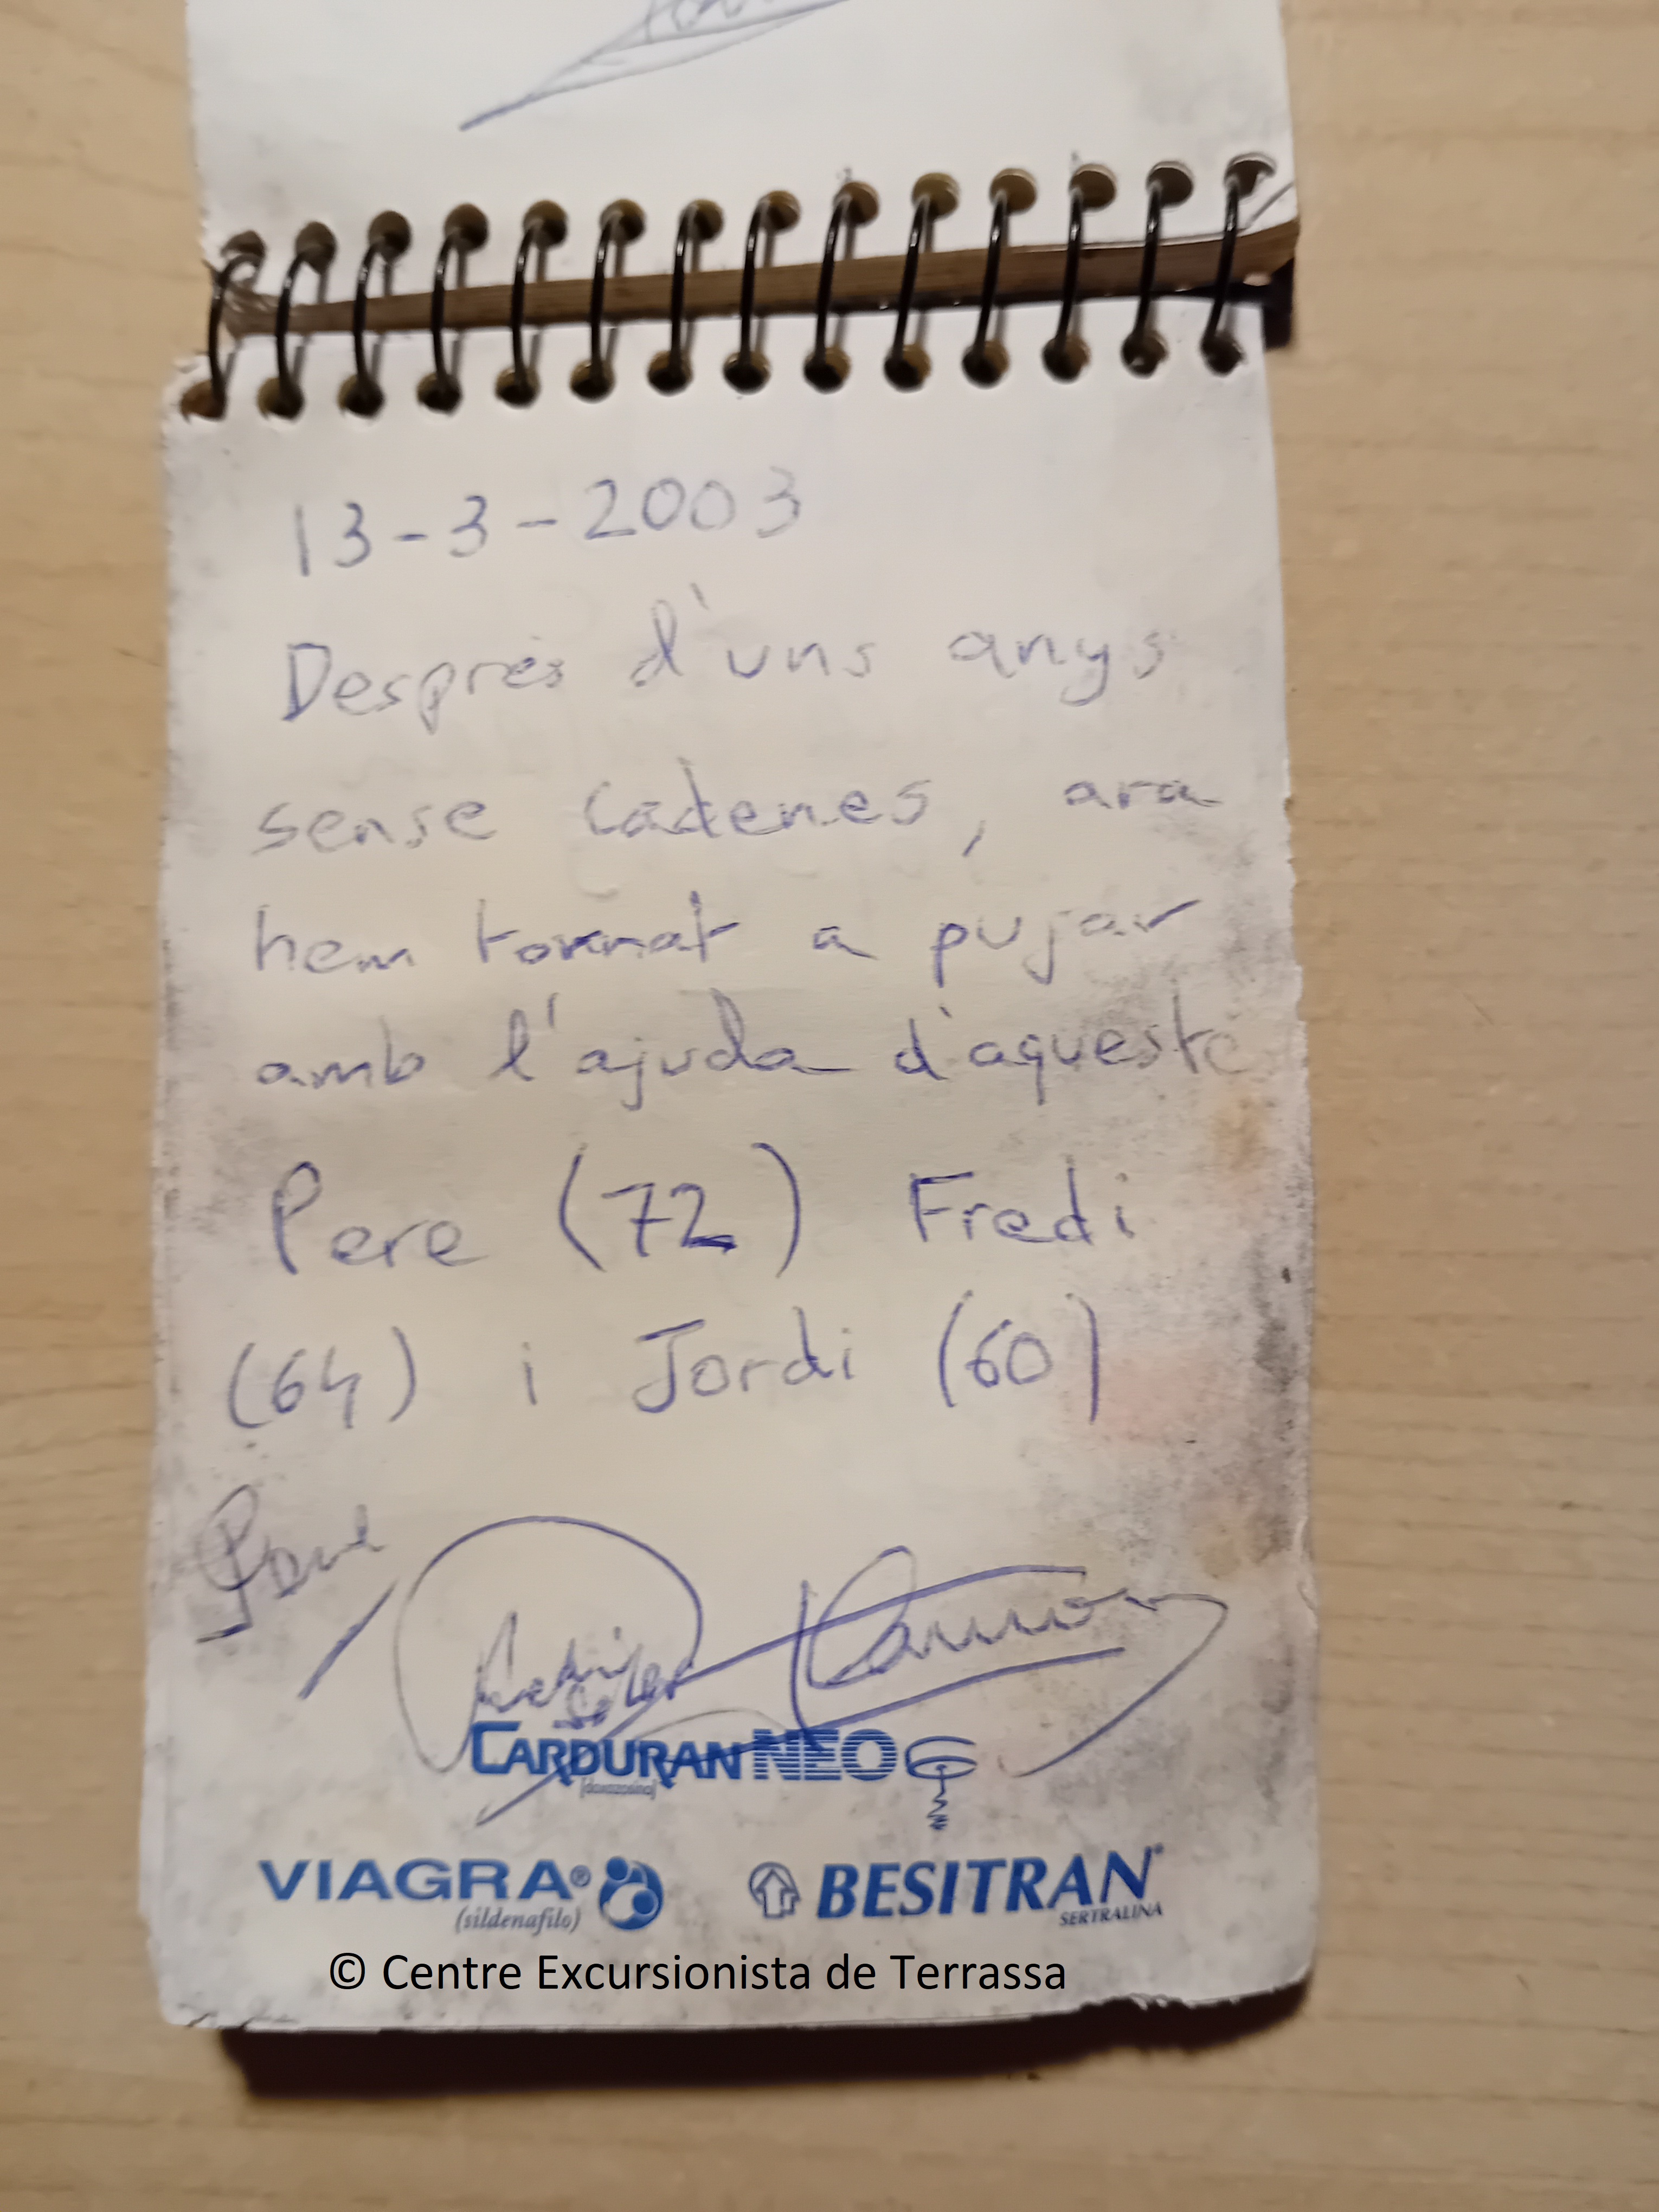 13-3-2003
Després d'uns anys
sense cadenes, ara
hem tornat a pujar
amb l'ajuda d'aqueste
Pere (72) Fredi
(64) i Jordi (60)
CARDURAN NEO
(doxazosina)
VIAGRA®
(sildenafilo)
BESITRAN®
SERTRALINA
© Centre Excursionista de Terrassa